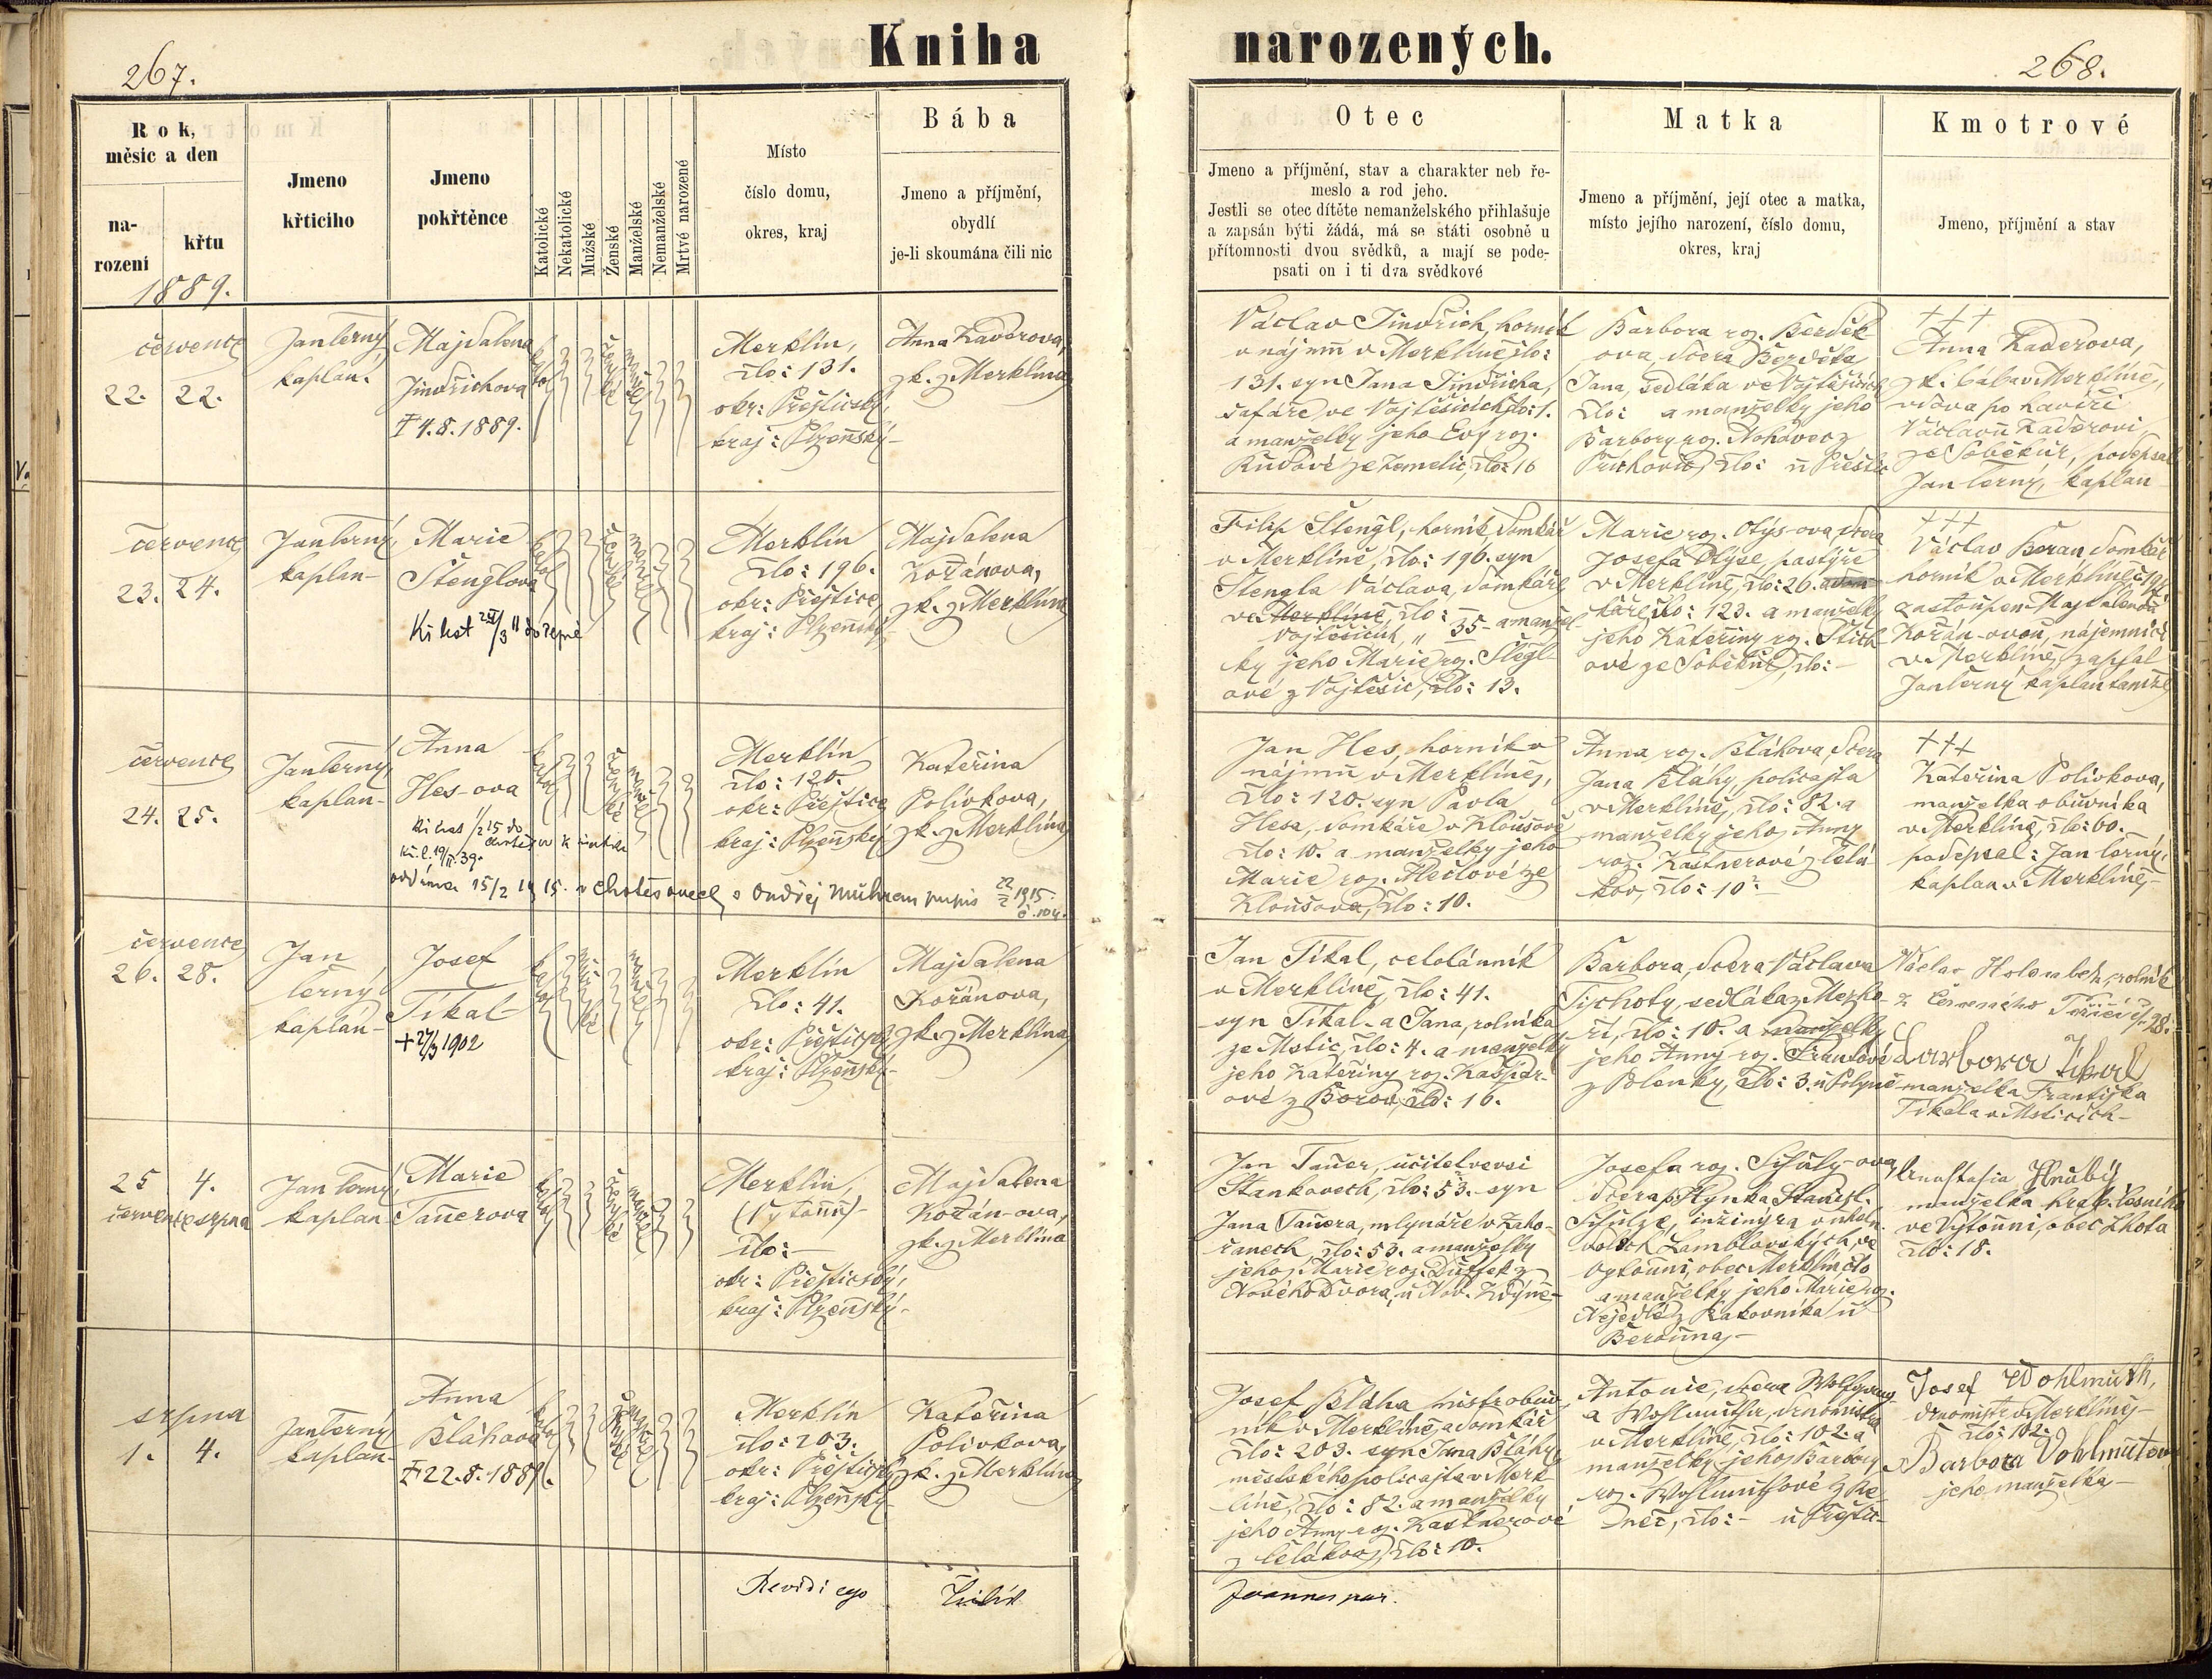 Kniha narozených.
267.
268.
Rok,
měsic a den
na-
rození
křtu
Jmeno
křticiho
Jmeno
pokřtěnce
Katolické
Nekatolické
Mužské
Ženské
Manželské
Nemanželské
Mrtvé narozené
Místo
číslo domu,
okres, kraj
Bába
Jmeno a příjmění,
obydlí
je-li skoumána čili nic
Otec
Jmeno a příjmění, stav a charakter neb ře-
meslo a rod jeho.
Jestli se otec dítěte nemanželského přihlašuje
a zapsán býti žádá, má se státi osobně u
přítomnosti dvou svědků, a mají se pode-
psati on i ti dva svědkové
Matka
Jmeno a příjmění, její otec a matka,
místo jejího narození, číslo domu,
okres, kraj
Kmotrové
Jmeno, příjmění a stav
1889.
července
22. 22.
Jan Černý,
kaplan.
Majdalena
Jindřichova
‡ 4.8.1889.
Merklín,
čło: 131.
okr: Přeštický,
kraj: Plzeňský-
Anna Kaderova,
zk. z Merklína
Václav Jindřich, horník
v nájmu v Merklíně, čło:
131. syn Jana Jindřicha,
šafáře ve Vojtěšicích čło: 1.
a manželky jeho Evy roz.
ze Zemětic, čło: 16
Barbora roz. Bezděk
ova dcera Bezděka
Jana, sedláka ve Vojtěšicích
čło: a manželky jeho
Barbory roz. Nohavec z
Příchovic, čło: u Přeštic
+++
Anna Kaderova,
zk. bába v Merklíně,
vdova po havíři
Václavu Kaderovi,
ze Soběkur, podepsal
Jan Černý, kaplan
července
23. 24.
Jan Černý,
kaplan-
Marie
Štenglova
Merklín
čło: 196.
okr: Přeštice,
kraj: Plzeňský
Majdalena
Kořánova,
zk. z Merklína
Filip Štengl, horník, domkář
v Merklíně, čło: 196. syn
Štengla Václava, domkáře
ve Merklíně, čło: 35- a manžel-
Vojtěšicích "
ky jeho Marie roz. Šlégl-
ové z Vojtěšic, čło: 13.
Marie roz. Otýs-ova, dcera
Josefa Otýse, pastýře
v Merklíně, čło: 26. a dom
káře čło: 123. a manželky
jeho Kateřiny roz. Štich-
ové ze Soběkur, čło: -
+++
Václav Beran domkář
horník v Merklíně č 196
zastoupen Majdalenou
Kořán-ovou, nájemnicí
v Merklíně, zapsal
Jan Černý kaplan tamtéž
července
24. 25.
Jan Černý,
kaplan-
Anna
Hes-ova
oddána 15/2 1915. v Chotěšovech s Ondřej 1915
č. 104.
Merklín
čło: 120.
okr: Přeštice
kraj: Plzeňský
Kateřina
Polívkova,
zk. z Merklína
Jan Hes, horník v
nájmu v Merklíně,
čło: 120. syn Pavla
Hesa, domkáře v Kloušově
čło: 10. a manželky jeho
Marie roz. Mečlové ze
Kloušova, čło: 10.
Anna roz. Bláhova, dcera
Jana Bláhy, policajta
v Merklíně, čło: 82. a
manželky jeho Anny
roz. Kastnerové z Čelá-
kov, čło: 10?-
+++
Kateřina Polívkova,
manželka obuvníka
v Merklíně, čło: 60.
podepsal: Jan Černý,
kaplan v Merklíně-
července
26. 28.
Jan
Černý
kaplan-
Josef
Tikal-
+ 27/3 1902
Merklín
čło: 41.
okr: Přeštický
kraj: Plzeňský-
Majdalena
Kořánova,
zk. z Merklína
Jan Tikal, celolánník
v Merklíně, čło: 41.
syn Tikal-a Jana, rolníka
ze Mstic, čło: 4. a manželky
jeho Kateřiny roz. Kašpar-
ové z Borov, čło: 16.
Barbora, dcera Václava
Tichoty, sedláka z Mezho-
ří, čło: 10. a manželky
jeho Anny roz. Frantové
z Polenky, čło: 3. u Polyně
Václav Holenabek, rolník
z Červeného Poříčí čp. 28.
Barbora Tikal
manželka Františka
Tikala v Msticích-
25 4.
července srpna
Jan Černý,
kaplan
Marie
Tauerova
Merklín,
(Vytouň)-
čło: -
okr: Přeštický,
kraj: Plzeňský-
Majdalena
Kořán-ova,
zk. z Merklína
Jan Tauer, učitel ve vsi
Stankovech, čło: 53. syn
Jana Tauera, mlynáře v Zaho-
řanech, čło: 53. a manželky
jeho Marie roz. Duffek z
Nového Dvora, u Nov. Kdyně-
Josefa roz. Schulz-ova,
dcera p. Hynka Stanisl.
Schulze, inžinýra v
ve
Vytouni, obec Merklín čło
a manželky jeho Marie roz.
Nejedlé z Rakovníka u
Berouna,-
Anastasia Hrubý
manželka
ve Vytouni, obec Lhota
čło: 18.
srpna
1. 4.
Jan Černý
kaplan-
Anna
Bláhova
‡ 22.8.1889.
Merklín
čło: 203.
okr: Přeštický
kraj: Plzeňský
Kateřina
Polívkova,
zk. z Merklína
Josef Bláha mistr obuv-
ník v Merklíně, a domkář
čło: 203. syn Jana Bláhy
městského policajta v Merk
líně, čło: 82. a manželky
jeho Anny roz. Kastnerové
z Čelákov, čło: 10.
Antonie, dcera Wolfgang-
a Wohlmutha,
v Merklíně, čło: 102. a
manželky jeho Barbory
roz. Wohlmuthové z
čło: - u Přeštic-
Josef Wohlmuth,
v Merklíně-
čło: 102.
Barbora Vohlmutova
jeho manželka-
Revidi ego
Joannes par.